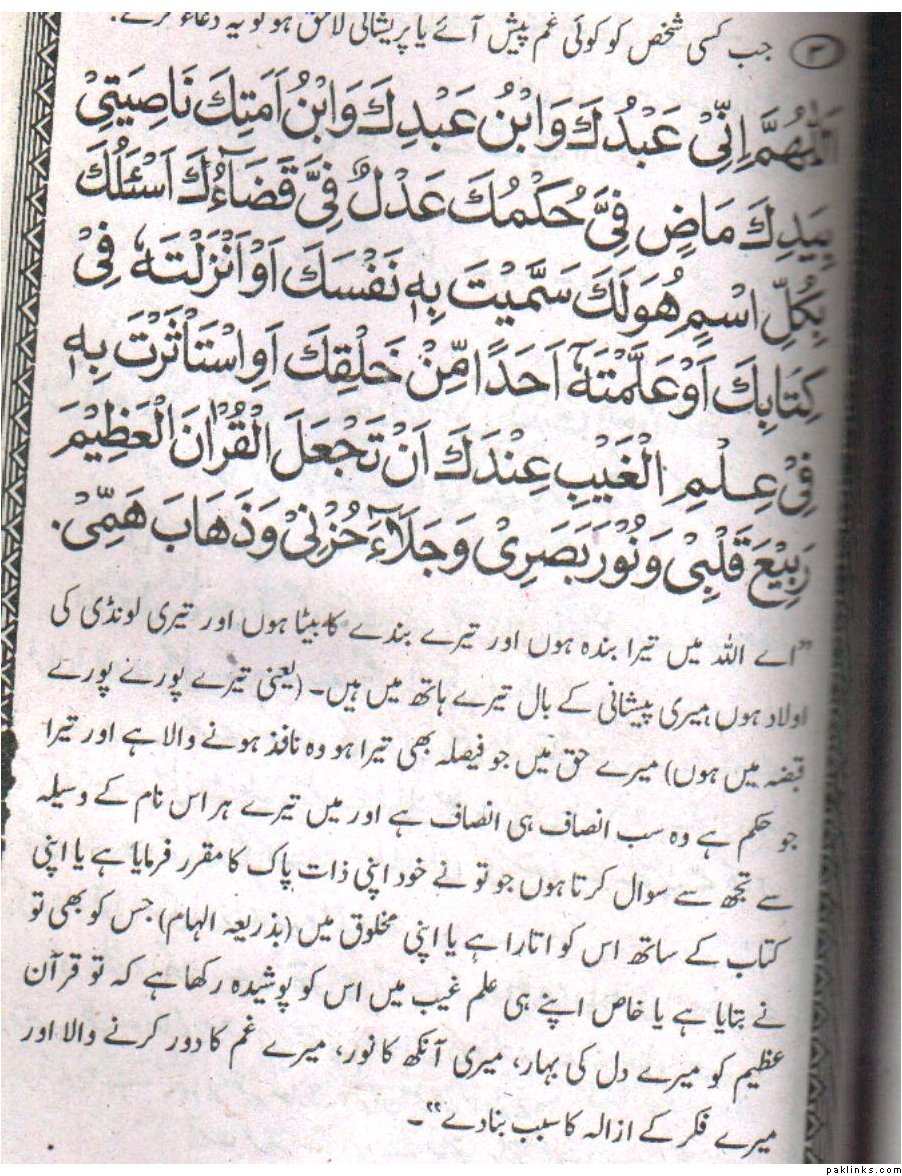 (۳) جب کسی شخص کو کوئی غم پیش آئے یا پریشانی لاحق ہو تو یہ دعاء کرے۔
اَللّٰهُمَّ اِنِّیْ عَبْدُكَ وَابْنُ عَبْدِكَ وَابْنُ اَمَتِكَ نَاصِیَتِیْ
بِیَدِكَ مَاضٍ فِیَّ حُكْمُكَ عَدْلٌ فِیَّ قَضَآءُكَ اَسْئَلُكَ
بِكُلِّ اسْمٍ هُوَلَكَ سَمَّیْتَ بِهٖ نَفْسَكَ اَوْاَنْزَلْتَهٗ فِیْ
كِتَابِكَ اَوْعَلَّمْتَهٗٓ اَحَدًا مِّنْ خَلْقِكَ اَوِاسْتَأْثَرْتَ بِهٖ
فِیْ عِلْمِ الْغَیْبِ عِنْدَكَ اَنْ تَجْعَلَ الْقُرْاٰنَ الْعَظِیْمَ
رَبِیْعَ قَلْبِیْ وَنُوْرَ بَصَرِیْ وَجَلَآءَ حُزْنِیْ وَذَهَابَ هَمِّیْ.
”اے اللہ میں تیرا بندہ ہوں اور تیرے بندے کا بیٹا ہوں اور تیری لونڈی کی
اولاد ہوں میری پیشانی کے بال تیرے ہاتھ میں ہیں۔ (یعنی تیرے پورے پورے
قبضہ میں ہوں) میرے حق میں جو فیصلہ بھی تیرا ہو وہ نافذ ہونے والا ہے اور تیرا
جو حکم ہے وہ سب انصاف ہی انصاف ہے اور میں تیرے ہر اس نام کے وسیلہ
سے تجھ سے سوال کرتا ہوں جو تو نے خود اپنی ذات پاک کا مقرر فرمایا ہے یا اپنی
کتاب کے ساتھ اس کو اتارا ہے یا اپنی مخلوق میں (بذریعہ الہام) جس کو بھی تو
نے بتایا ہے یا خاص اپنے ہی علم غیب میں اس کو پوشیدہ رکھا ہے کہ تو قرآن
عظیم کو میرے دل کی بہار، میری آنکھ کا نور، میرے غم کا دور کرنے والا اور
میرے فکر کے ازالہ کا سبب بنا دے“۔
paklinks.com